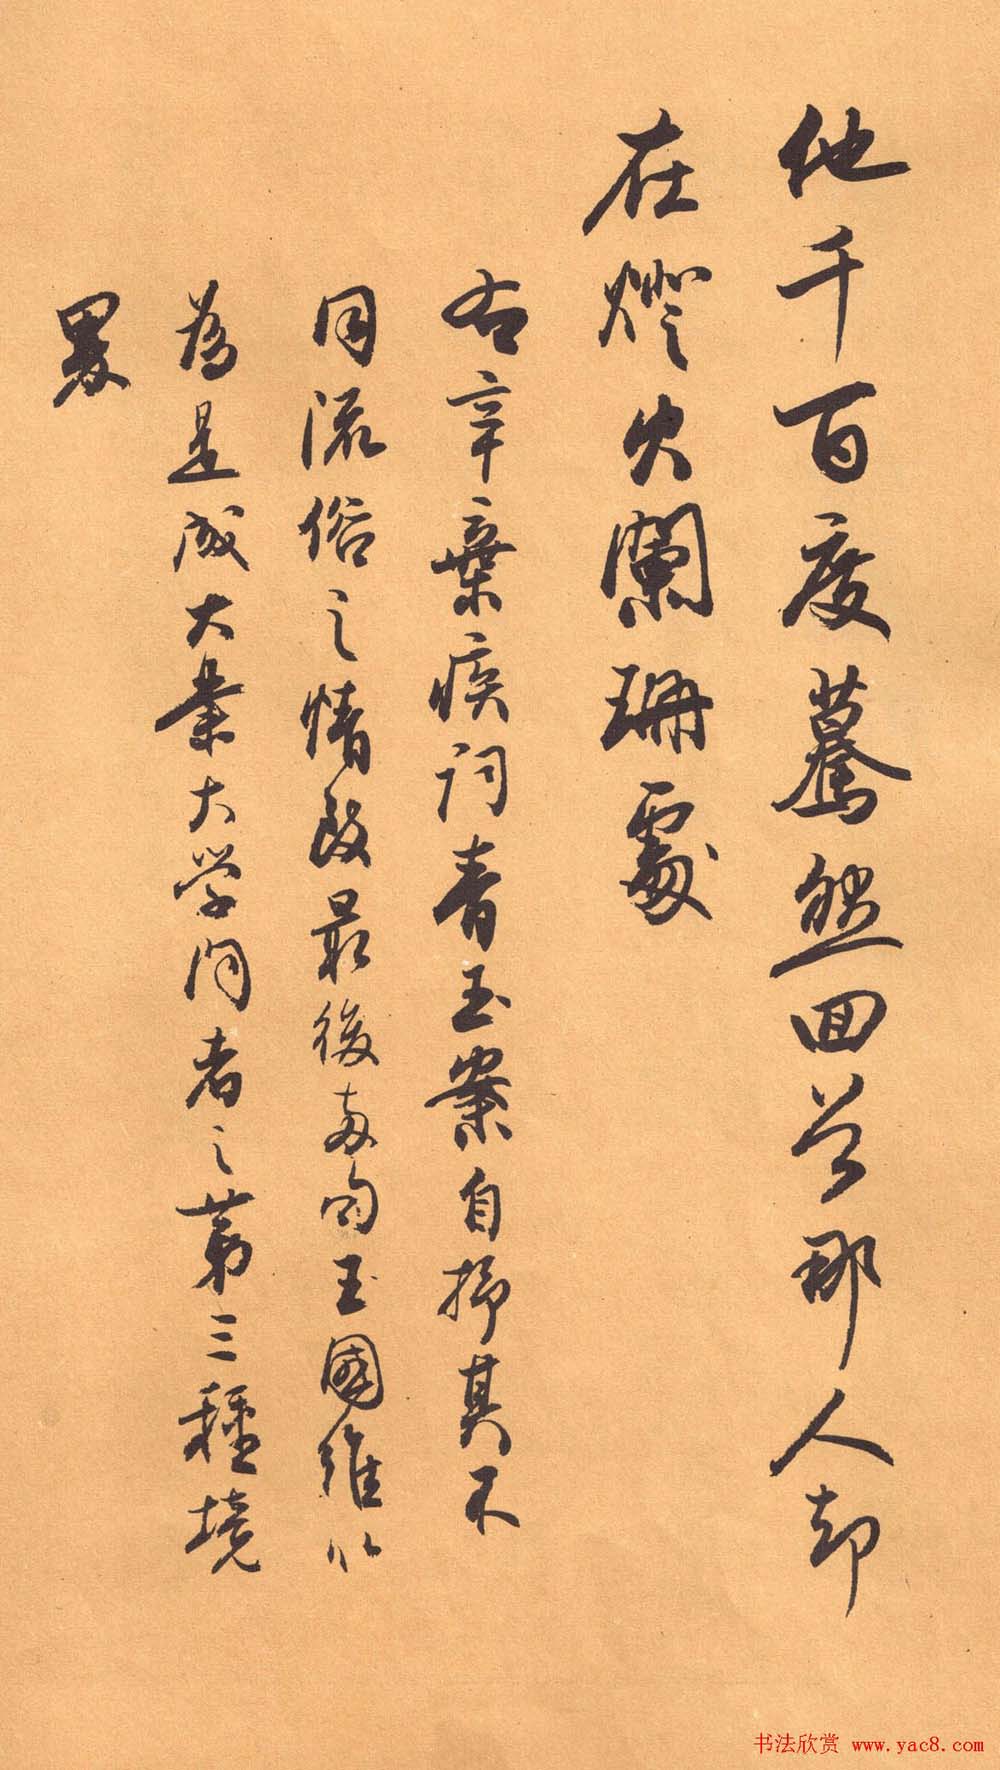 他千百度驀然回首那人却
在燈火闌珊處
右辛棄疾詞青玉案自抒其不
同流俗之情致最後兩句王國維以
為是成大業大学問者之第三種境
界
书法欣赏 www.yac8.com